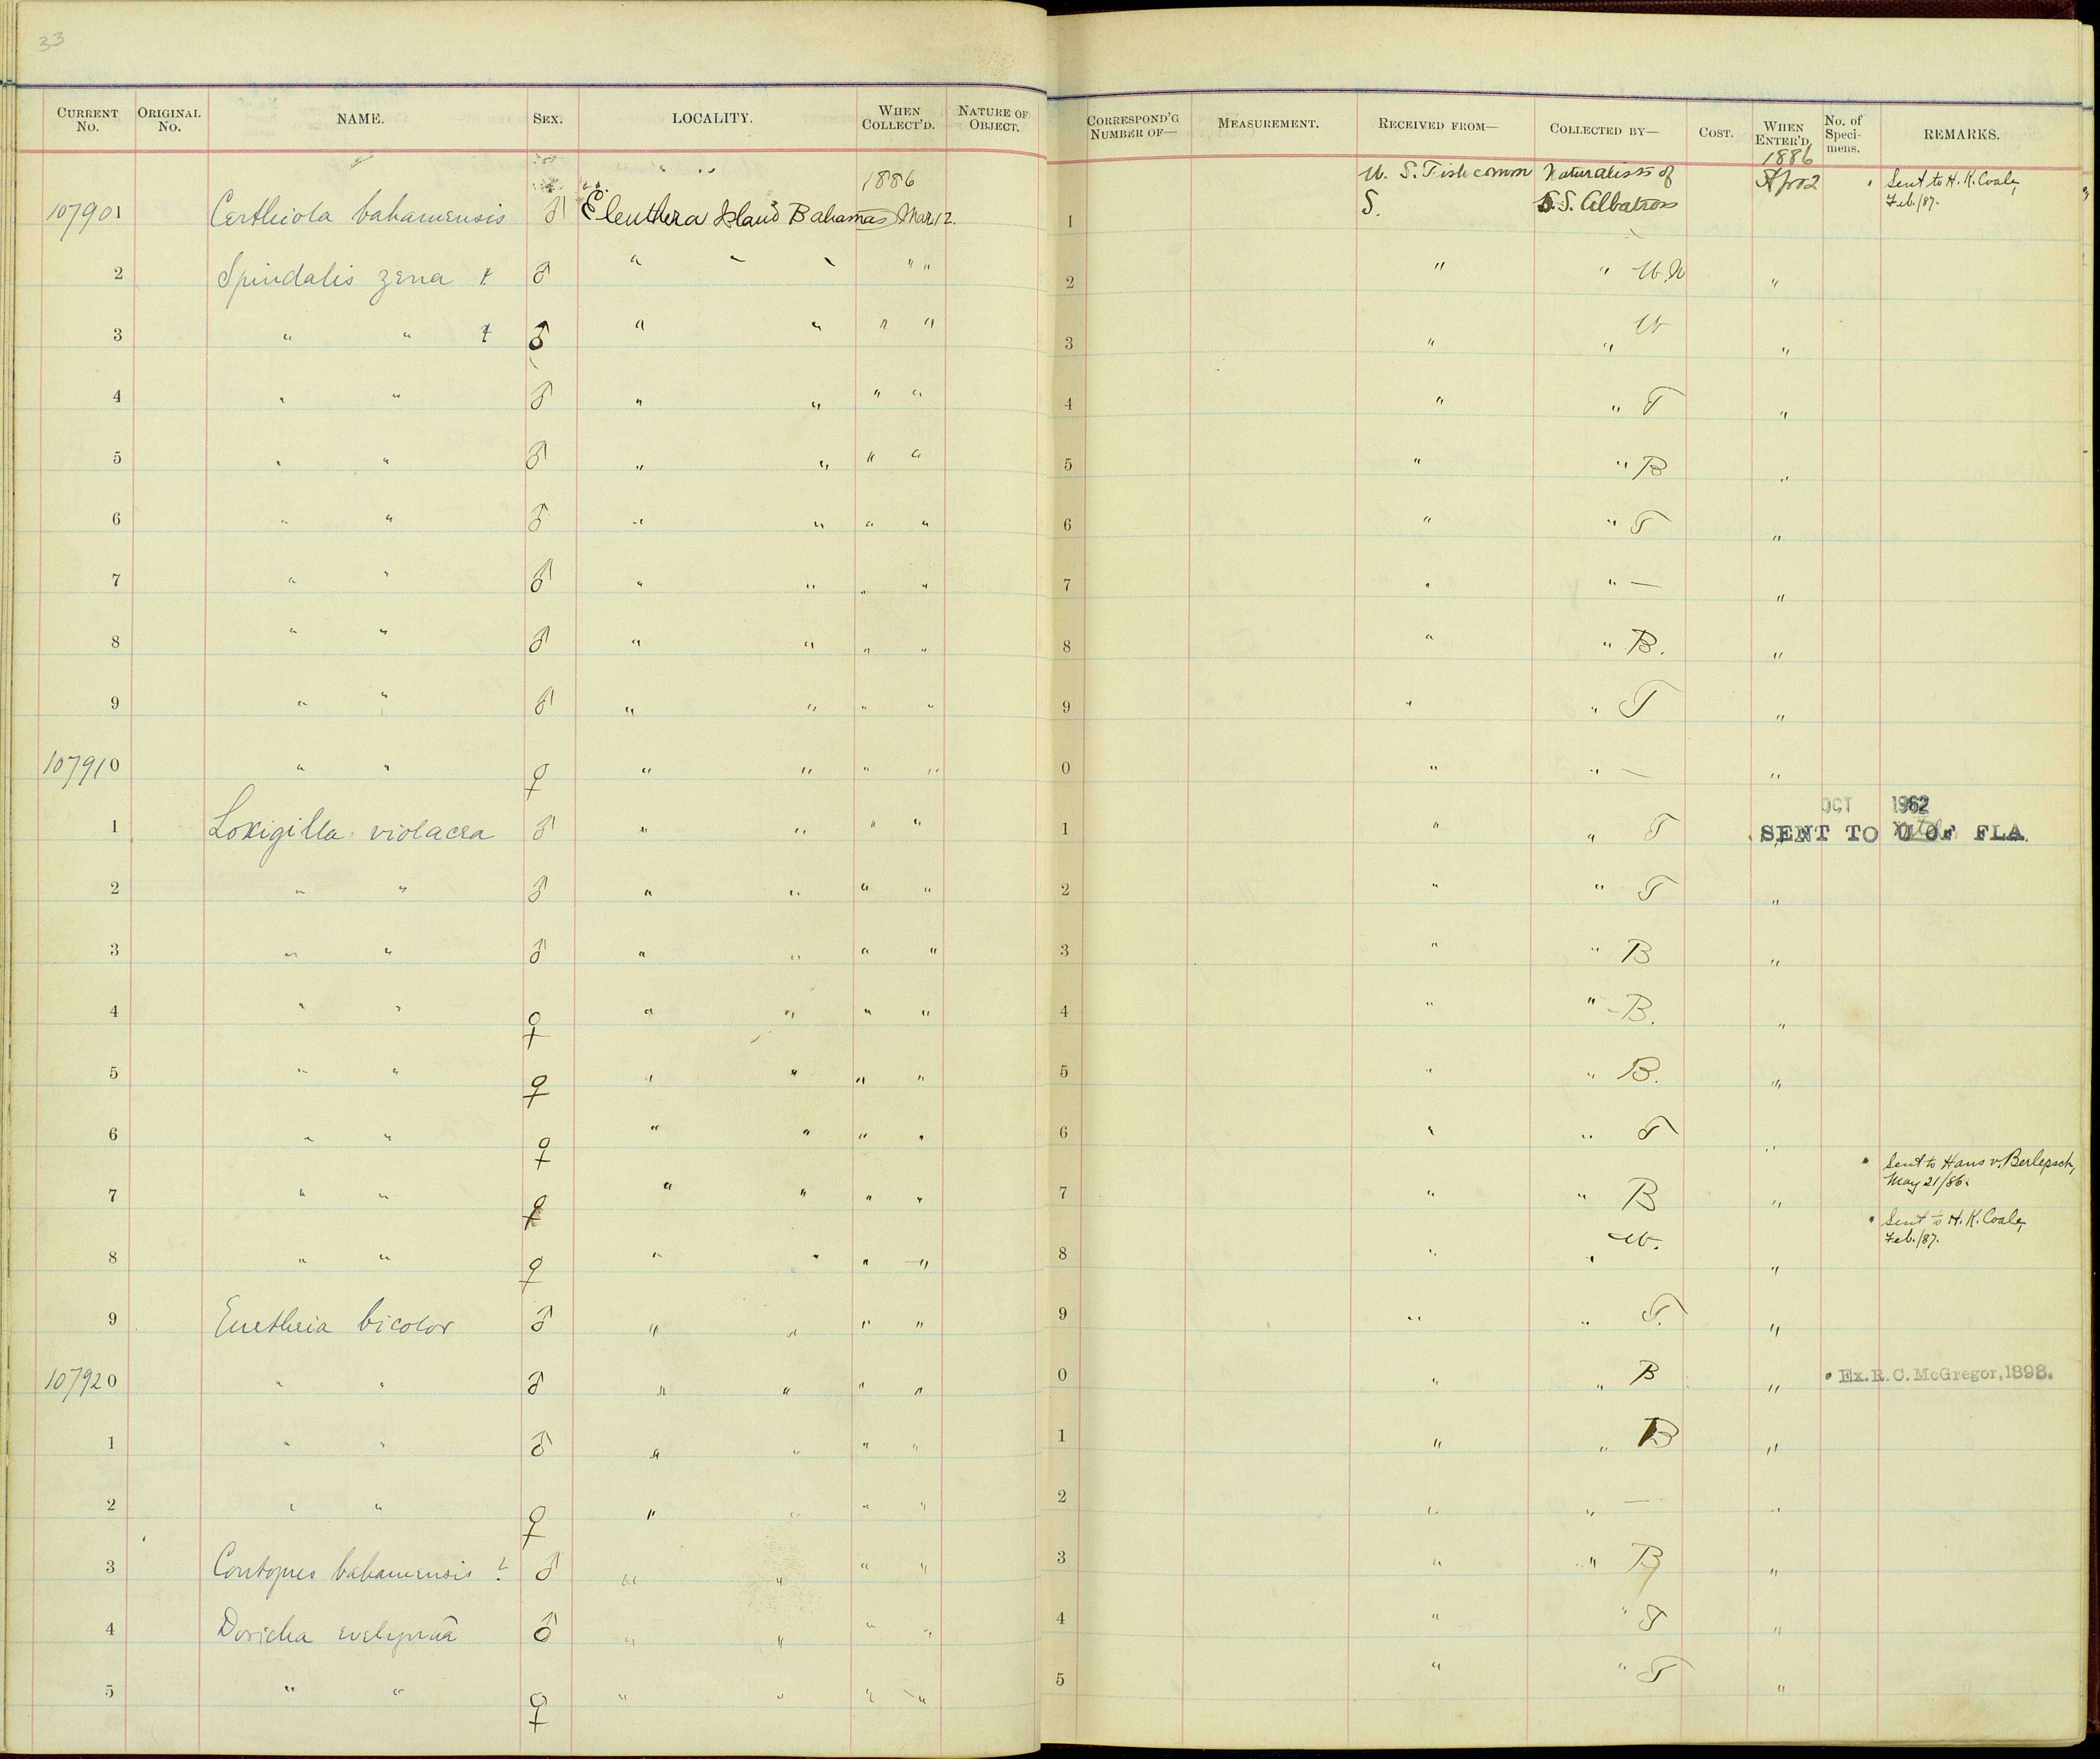 33
CURRENT No. ORIGINAL No. NAME. SEX. LOCALITY. WHEN COLLECT'D. NATURE OF OBJECT. CORRESPOND'G NUMBER OF— MEASUREMENT. RECEIVED FROM— COLLECTED BY— COST. WHEN ENTER'D. No. of Specimens. REMARKS.
1886 U. S. Fish comm Naturalists of 1886 Apr 2 Sent to H. K. Coale,
107901 Certhiola bahamensis ♂ Eleuthera Island Bahamas Mar 12. 1 S. S.S. Albatross Feb./87.
2 Spindalis zena ♂ " " " " " 2 " " "
3 " " ♂ " " " " 3 " " "
4 " " ♂ " " " " 4 " " T "
5 " " ♂ " " " " 5 " " B "
6 " " ♂ " " " " 6 " " T "
7 " " ♂ " " " " 7 " " — "
8 " " ♂ " " " " 8 " " B. "
9 " " ♂ " " " " 9 " " T "
107910 " " ♀ " " " " 0 " " — "
OCT 1962
1 Loxigilla violacea ♂ " " " " 1 " " T " SENT TO U OF FLA.
2 " " ♂ " " " " 2 " " T "
3 " " ♂ " " " " 3 " " B "
4 " " ♀ " " " " 4 " " B. "
5 " " ♀ " " " " 5 " " B. "
6 " " ♀ " " " " 6 " " T "
7 " " ♀ " " " " 7 " " B " Sent to Hans v. Berlepsch, May 21/86.
8 " " ♀ " " " " 8 " " " Sent to H. K. Coale, Feb./87.
9 Euetheia bicolor ♂ " " " " 9 " " T. "
107920 " " ♂ " " " " 0 " " B " Ex. R. C. McGregor, 1898.
1 " " ♂ " " " " 1 " " B "
2 " " ♀ " " " " 2 " " — "
3 Contopus bahamensis ? ♂ " " " " 3 " " B "
4 Doricha evelynae ♂ " " " " 4 " " T "
5 " " ♀ " " " " 5 " " T "